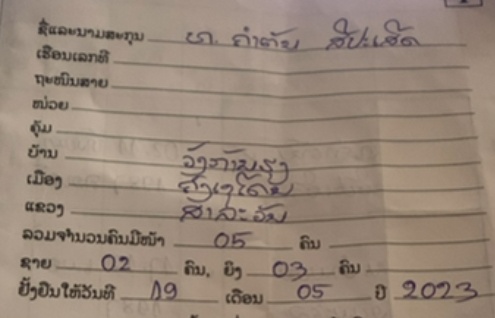 ຊື່ແລະນາມສະກຸນ ທ. ຄຳຕັນ ສີປະເສີດ
ເຮືອນເລກທີ
ຖະໜົນສາຍ
ໜ່ວຍ
ຄຸ້ມ
ບ້ານ
ເມືອງ ຄົງເຊໂດນ
ແຂວງ ສາລະວັນ
ລວມຈຳນວນຄົນມີໜ້າ 05 ຄົນ
ຊາຍ 02 ຄົນ, ຍິງ 03 ຄົນ
ຢັ້ງຢືນໃຫ້ວັນທີ 19 ເດືອນ 05 ປີ 2023